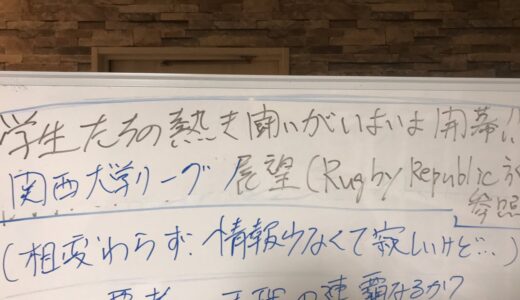 学生たちの熱き闘いがいよいよ開幕!!
関西大学リーグ 展望(Rugby Republic
参照
(相変わらず、情報少なくて寂しいけど…)
の連覇みるか?